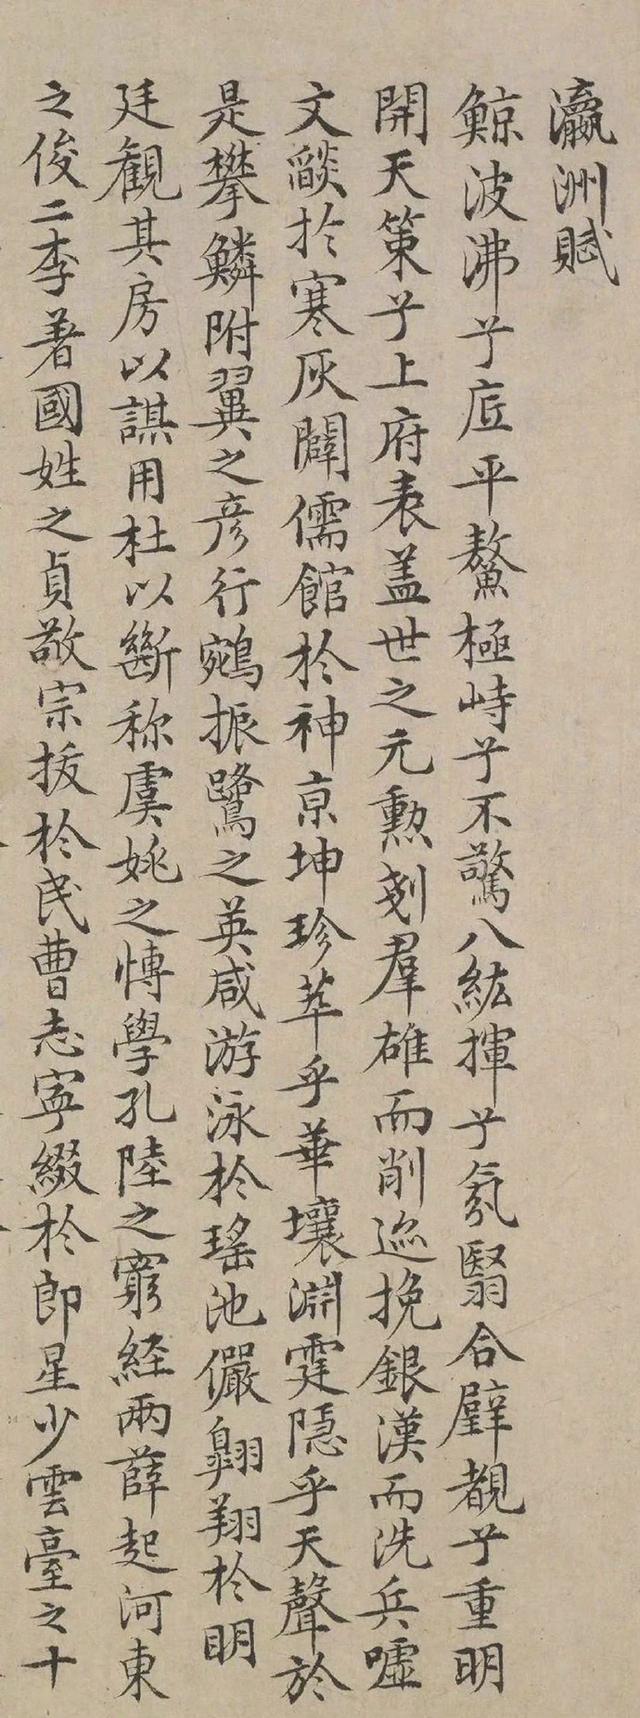 瀛洲賦
鯨波沸兮底平鰲極峙兮不驚八紘揮兮氛翳合璧覩兮重明
開天策兮上府表蓋世之元勲剗羣雄而削迹挽銀漢而洗兵噓
文燄於寒灰闢儒館於神京坤珍萃乎華壤淵霆隱乎天聲於
是攀鱗附翼之彦行鵷振鷺之英咸游泳於瑤池儼翱翔於明
廷觀其房以謀用杜以斷称虞姚之愽學孔陸之窮経兩薛起河東
之俊二李著國姓之貞敬宗拔於民曹志寧綴於郎星少雲臺之十